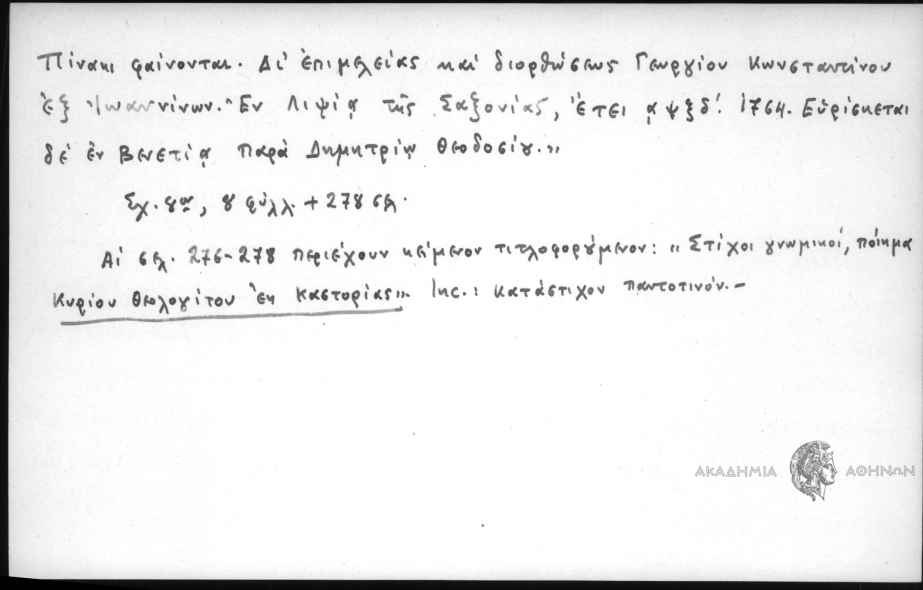 Πίνακι φαίνονται. Δι' ἐπιμελείας καὶ διορθώσεως Γεωργίου Κωνσταντίνου
ἐξ Ἰωαννίνων. Ἐν Λιψίᾳ τῆς Σαξονίας, ἔτει ᾳψξδ΄. 1764. Εὑρίσκεται
δὲ ἐν Βενετίᾳ παρὰ Δημητρίῳ Θεοδοσίου.»
Σχ. 8ον, 8 φύλλ. + 278 σελ.
Αἱ σελ. 276-278 περιέχουν κείμενον τιτλοφορούμενον: «Στίχοι γνωμικοί, ποίημα
Κυρίου Θεολογίτου ἐκ Καστορίας». Inc.: κατάστιχον παντοτινόν.-
ΑΚΑΔΗΜΙΑ ΑΘΗΝΩΝ